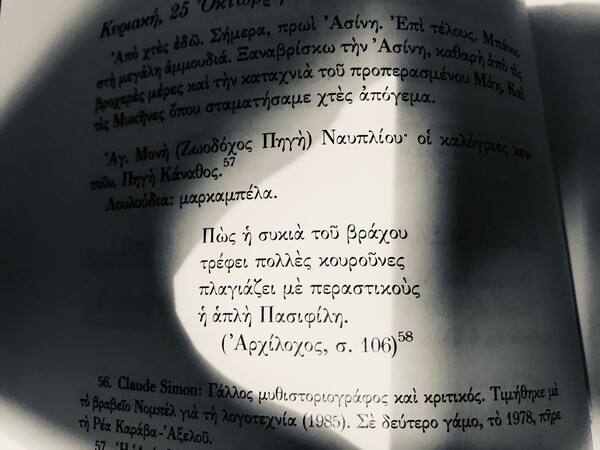 Κυριακή, 25 Ὀκτώβρη
Ἀπὸ χτὲς ἐδῶ. Σήμερα, πρωὶ Ἀσίνη. Ἐπὶ τέλους. Μπάνιο
στὴ μεγάλη ἀμμουδιά. Ξαναβρίσκω τὴν Ἀσίνη, καθαρὴ ἀπὸ τὶς
βροχερὲς μέρες καὶ τὴν καταχνιὰ τοῦ προπερασμένου Μάη. Καὶ
τὶς Μυκῆνες ὅπου σταματήσαμε χτὲς ἀπόγεμα.
Ἁγ. Μονὴ (Ζωοδόχος Πηγὴ) Ναυπλίου· οἱ καλόγριες κεν-
τοῦν. Πηγὴ Κάναθος.57
Λουλούδια: μαρκαμπέλα.
Πὼς ἡ συκιὰ τοῦ βράχου
τρέφει πολλὲς κουροῦνες
πλαγιάζει μὲ περαστικοὺς
ἡ ἁπλὴ Πασιφίλη.
(Ἀρχίλοχος, σ. 106)58
56. Claude Simon: Γάλλος μυθιστοριογράφος καὶ κριτικός. Τιμήθηκε μὲ
τὸ βραβεῖο Νομπὲλ γιὰ τὴ λογοτεχνία (1985). Σὲ δεύτερο γάμο, τὸ 1978, πῆρε
τὴ Ρέα Καράβα-Ἀξελοῦ.
57.